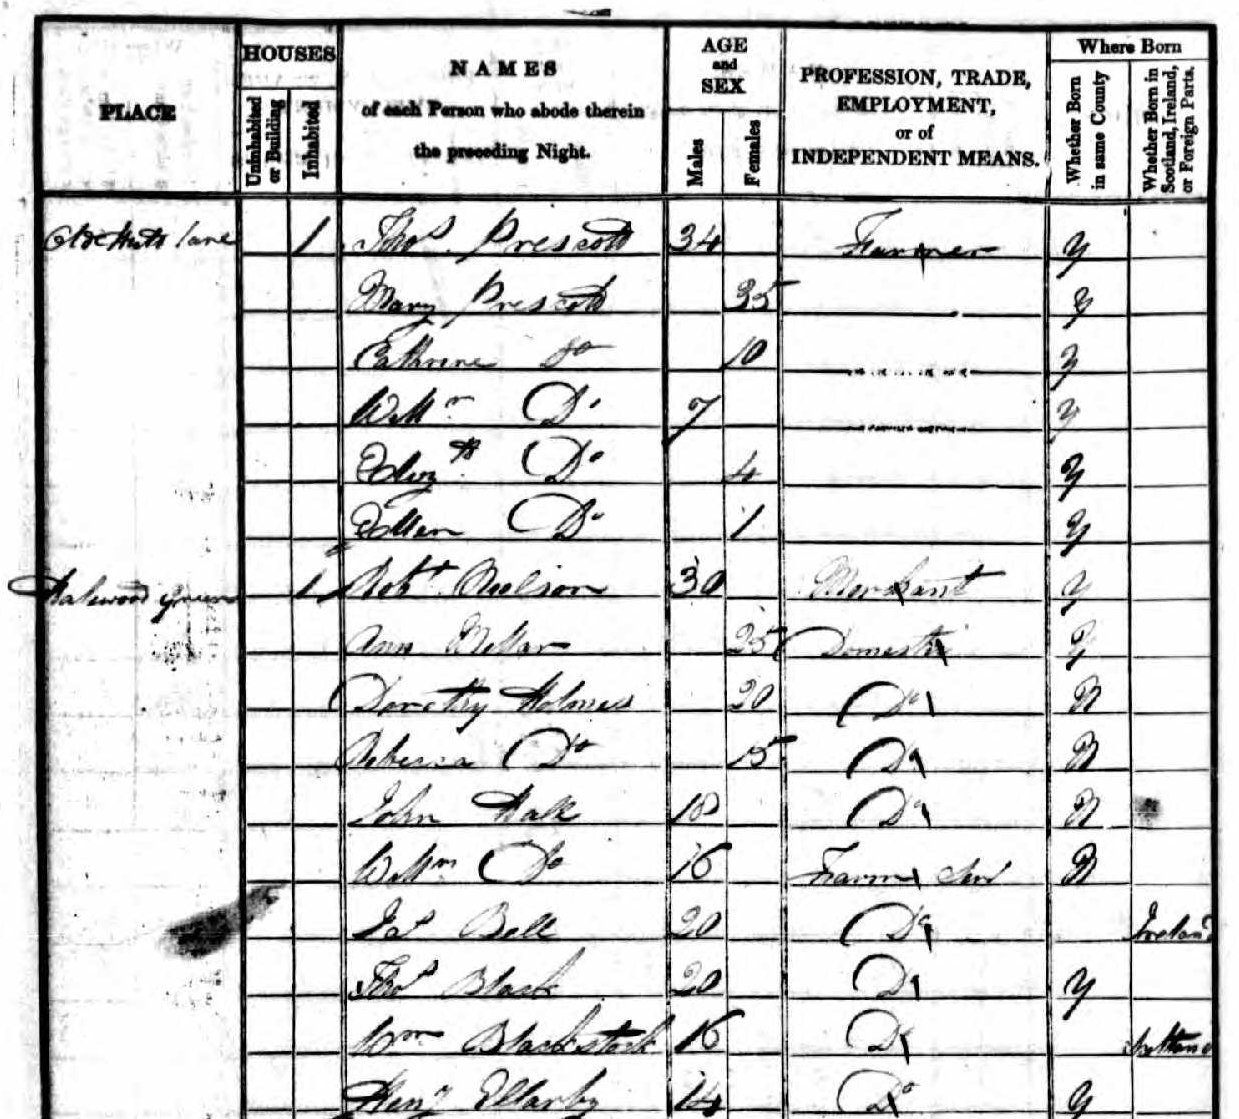 PLACE
HOUSES
Uninhabited or Building
Inhabited
NAMES
of each Person who abode therein
the preceding Night.
AGE
and
SEX
Males
Females
PROFESSION, TRADE,
EMPLOYMENT,
or of
INDEPENDENT MEANS.
Where Born
Whether Born in same County
Whether Born in Scotland, Ireland, or Foreign Parts.
lane 1 Thos. Prescott 34 Farmer Y
Mary Prescott 35 Y
Cathrine Do 10 Y
Willm Do 7 Y
Elizth Do 4 Y
Ellen Do 1 Y
Halewood Green 1 Robt Neilson 30 Merchant Y
Ann Mellar 25 Domestic Y
Dorothy Holmes 20 Do N
Rebecca Do 15 Do N
John Halk 18 Do N
Willm Do 16 Farm Ser N
Jas Bell 20 Do Ireland
Thos Black 20 Do Y
Wm Blackstock 16 Do
Heny Ellarby 14 Do Y